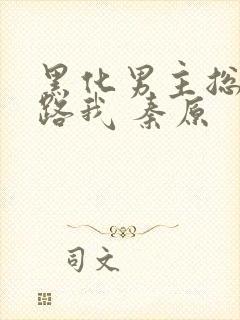 黑化男主总
路我 秦原
司文